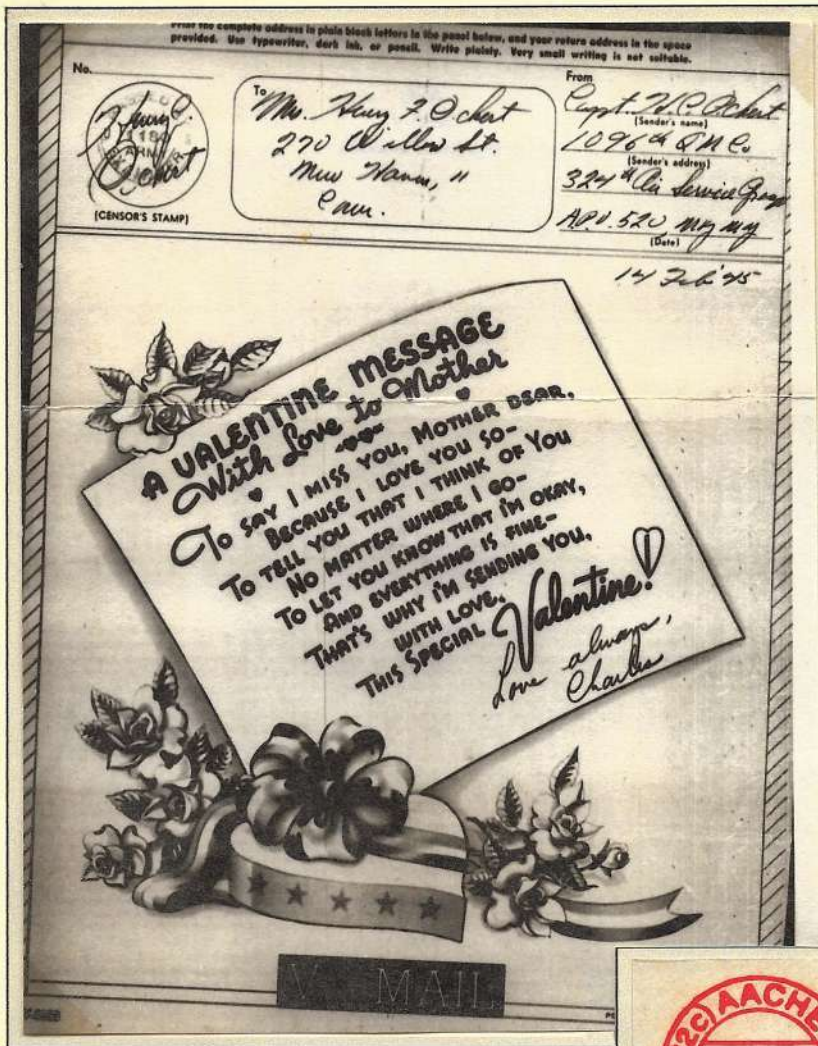 Print the complete address in plain block letters in the panel below, and your return address in the space
provided. Use typewriter, dark ink, or pencil. Write plainly. Very small writing is not suitable.
No.
Henry C.
Ochert
ARMY
(CENSOR'S STAMP)
To
Mr. Henry F. Ochert
270 Willow St.
New Haven, 11
Conn.
From
Capt. H. C. Ochert
(Sender's name)
1096th QM Co
(Sender's address)
324th Air Service Group
APO. 520, NY NY
(Date)
14 Feb '45
A VALENTINE MESSAGE
With Love to Mother
To SAY I MISS YOU, MOTHER DEAR,
BECAUSE I LOVE YOU SO-
To TELL YOU THAT I THINK OF YOU
NO MATTER WHERE I GO-
To LET YOU KNOW THAT I'M OKAY,
AND EVERYTHING IS FINE-
THAT'S WHY I'M SENDING YOU,
WITH LOVE,
THIS SPECIAL Valentine!
Love always,
Charles
V MAIL
AACHE